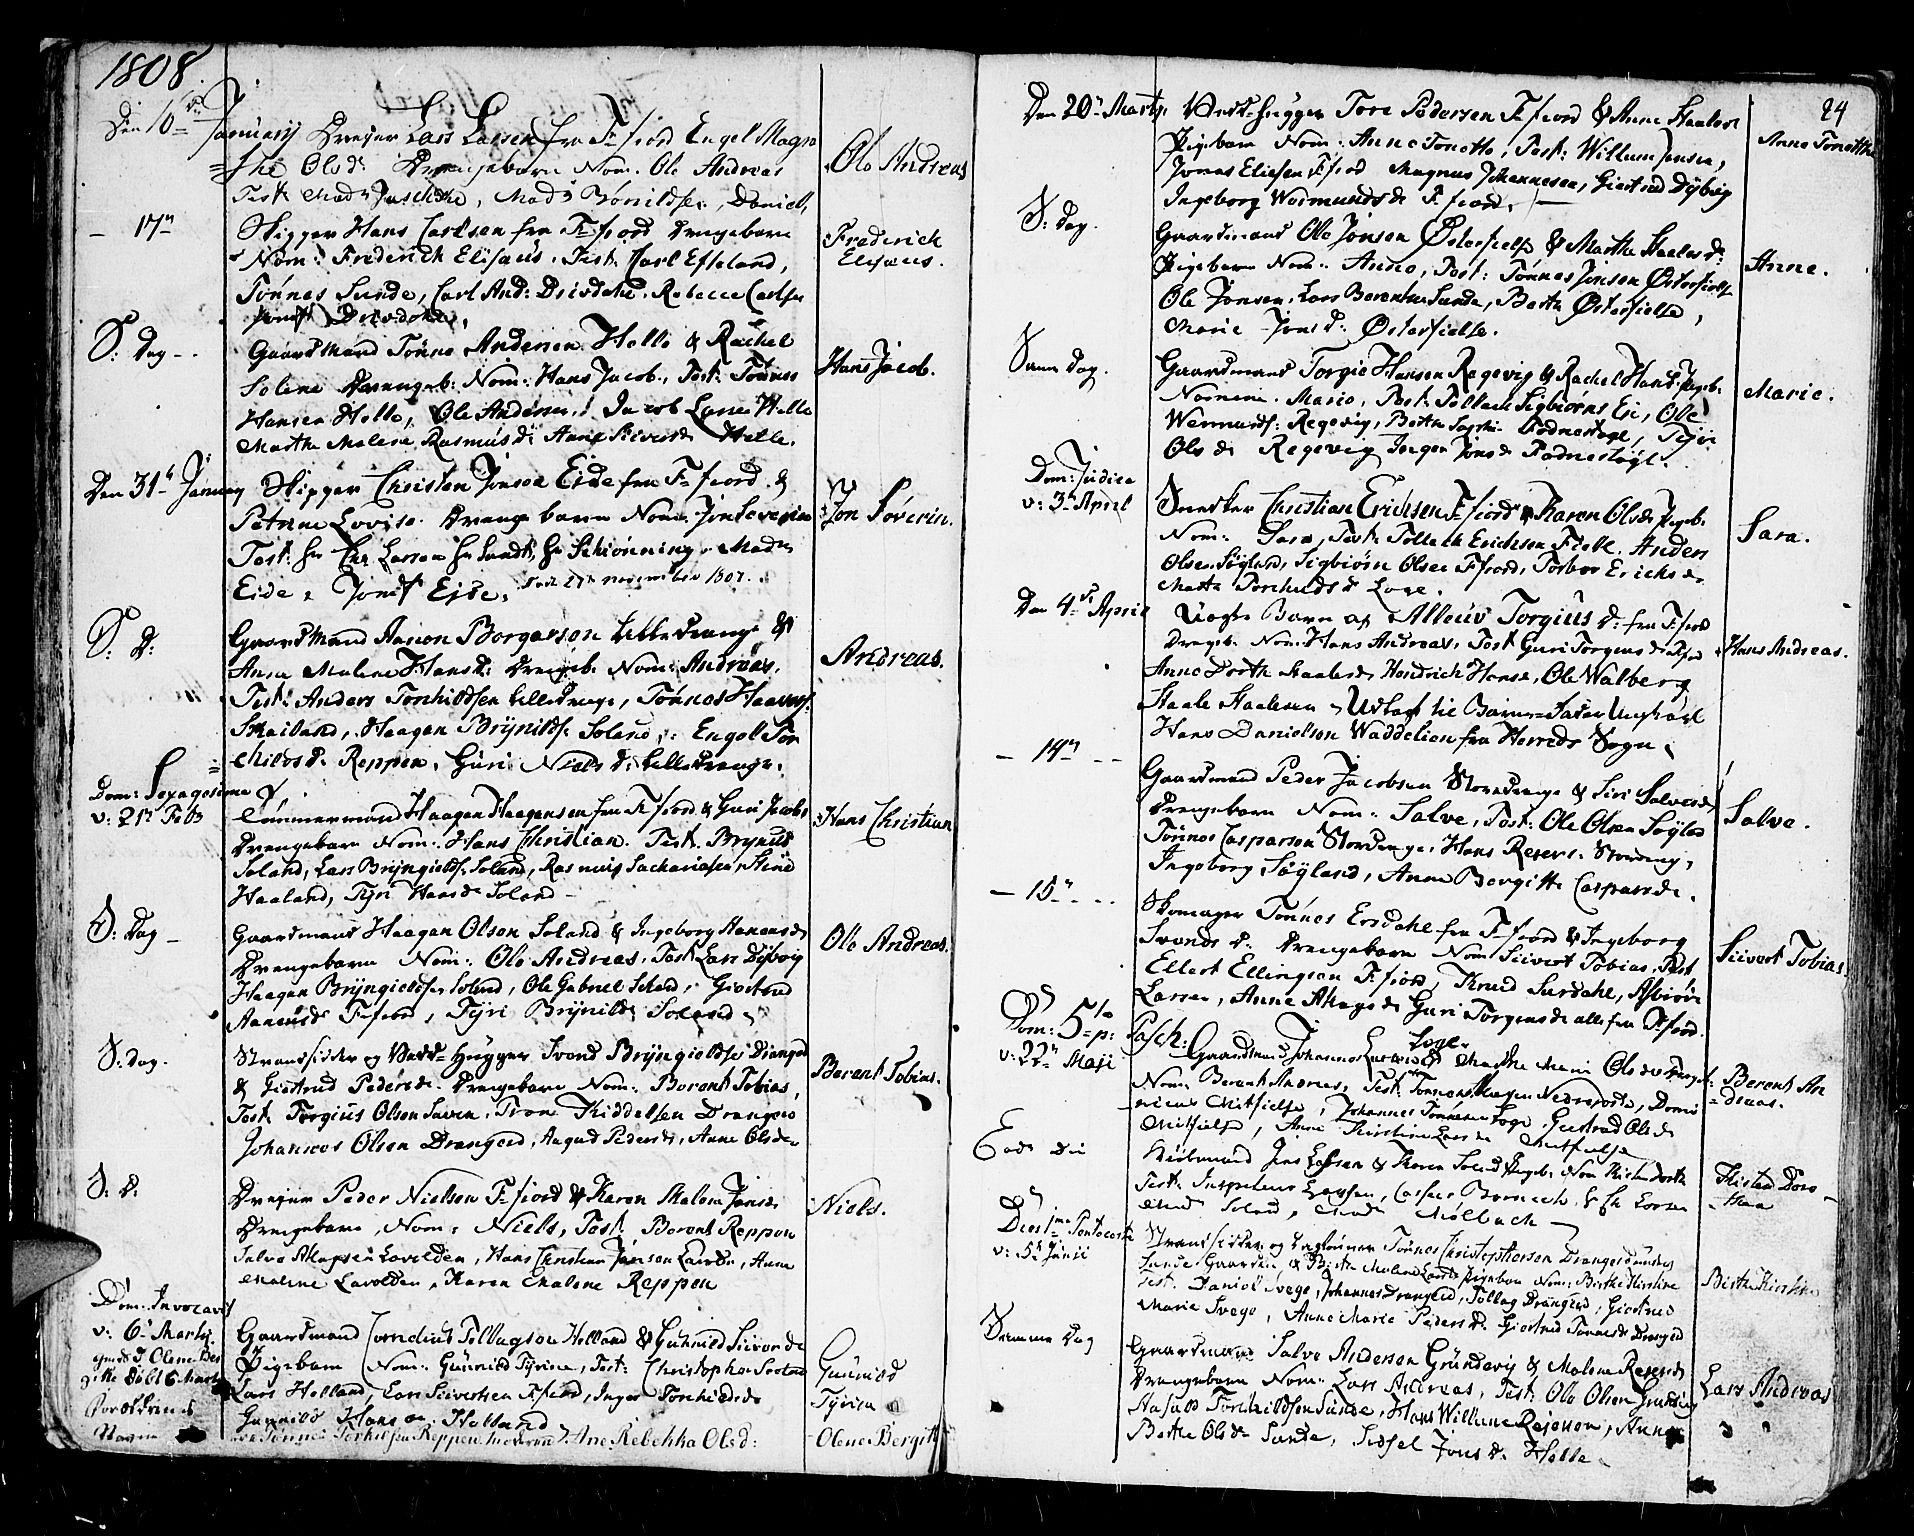 1808.
Den 16de January Drejer Lars Larsen fra F-fjord Engel Magre
=the Olsd: Drengebarn Nom: Ole Andreas
Test: Mad: Juschche, Mad: Bönildsen, Daniel,
Ole Andreas
- 17n Skipper Hans Carlsen fra F-fjord Drengebarn
Nom: Frederich Elisæus. Test: Carl Efteland,
Tönnes Sunde, Carl And: Drivdahl, Rebecca Carlsen
Frederich
Elisæus.
S: Dag Gaardmand Tönnes Andersen Helle & Rachel
Solene Drengeb: Nom: Hans Jacob, Test: Tönnes
Hansen Helle, Ole Andersen, Jacob Larsen Helle
Marthe Malene Rasmusd: Helle.
Hans Jacob.
Den 31te January Skipper Christen Jonsen Eide fra F-fjord &
Petrine Lovise. Drengebarn Nom: Jon Severin
Test: Hr Chr Larsen Hr Lundt, Hr Schiönning, Mad
Eide, Jomfr Eide. födt 27de november 1807.
Jon Söverin.
S: D: Gaardmand Aanon Borgarson Lilledrange &
Anne Malene Hansd: Drengeb: Nom: Andreas.
Test: Anders Torkildsen Lilledrange, Tönnes Haavers:
Skailand, Haagen Brÿnilds: Soland, Engel Tor
childsd: Reppen, Guri Nielsd: Lilledrange.
Andreas.
Dom: Sexagesima
v: 21de Feb: Tömmermand Haagen Haagensen fra F-fjord & Guri Jacobs
Drengebarn Nom: Hans Christian. Test: Brynild
Soland, Lars Brÿngields: Soland, Rasmus Sachariasen, Stine
Haaland, Tÿri Hansd: Soland
Hans Christian
S: Dag Gaardmand Haagen Olsen Soland & Ingeborg Aanensd:
Drengebarn Nom: Ole Andreas, Test: Lars Dÿbvig
Haagen Brÿngields: Soland, Ole Gabriel Soland, Giertrud
Aanensd: F-fjord, Tÿri Brÿnildsd: Soland
Ole Andreas.
S: Dag. Strandsidder og Vardhugger Svend Brÿngieldsen Dranged
& Giertrud Pedersd: Drengebarn Nom: Berent Tobias,
Test: Torgius Olsen Sunde, Tron Kiddelsen Dranged
Johannes Olsen Dranged, Aagot Pedersd:, Anne Olsd:
Berent Tobias.
S: D: Drejer Peder Nielsen F-fjord & Karen Malene Jansd:
Drengebarn, Nom: Niels, Test: Berent Reppen
Salve Aslagsen Lavolden, Hans Christian Jansen, Anne
Malene Lavolden, Karen Malene Reppen
Niels.
Dom: Invocavit
v: 6te Martii Gaardmand Cornelius Tollagsen Helland & Gunnild Sivertsd:
Pigebarn Nom: Gunnild Tÿrine, Test: Christopher
Lars Helland, Lars Sivertsen F-fjord, Inger Torkildsd:
Gunnild Hansd: Helland
Gunnild
Tÿrine
Tönnes Torkilsen Reppen Ane Rebekka Olsd:
Olene Bergit
24
Den 20de Martii Vardhugger Tore Pedersen F-fjord & Anne Staalesd:
Pigebarn Nom: Anne Tonette, Test: Willum Jansen,
Jonas Eliesen F-fjord Magnus Johannesen, Giertrud Dÿbvig
Ingeborg Wermundsd: F-fjord.
Anne Tonette
S: Dag. Gaardmand Ole Jonsen Österfielse & Marthe Staalesd:
Pigebarn Nom: Anne, Test: Tönnes Jonsen Österfielse
Ole Jonsen, Lars Berentsen Sunde, Berthe Österfielse,
Marie Jonsd: Österfielse.
Anne.
Samme Dag. Gaardmand Torgie Hansen Regevig & Rachel Hansd: Pigeb:
Nomine Marie, Test: Tollach Sigbiörns Eie, Olle
Wermunds: Regevig, Berthe Fodnestøl, Tÿri
Olsd: Regevig Inger Jonsd: Fodnestøl.
Marie.
Dom: Judica
v: 3de April Snedker Christian Erichsen F-fjord & Karen Olsd: Pigeb:
Nom: Sara, Test: Tollach Erichsen Fidie, Anders
Olsen Söÿland, Sigbiörn Olsen F-fjord, Torbor Erichsd:
Marthe Torkildsd: Loge.
Sara.
Den 4de April Uægte Barn af Alleus Torgiusd: fra F-fjord
Drengeb: Nom: Hans Andreas, Test: Guri Torgiusd: F-fjord
Anne Dorthe Staalesd: Hendrich Hansen, Ole Walberg
Staale Staalesen, Udlagt til Barne-Fader Ungkarl
Hans Danielsen Waddelien fra Herreds Sogn.
Hans Andreas.
- 14de Gaardmand Peder Jacobsen Stordrange & Siri Salvesd:
Drengebarn Nom: Salve, Test: Ole Olsen Söÿland
Tönnes Casparsen Stordrange, Hans Reiers: Stordrang,
Ingeborg Söÿland, Anne Bergitte Caspersd:
Salve.
- 15de Skomager Tönnes Ersdahl fra F-fjord & Ingeborg
Svendsd: Drengebarn Nom: Sivert Tobias, Test:
Ellert Ellingsen F-fjord, Knud Surdahl, Asbiörn
Larsen, Anne Aslagsd: Guri Torgiusd: alle fra F-fjord.
Siivert Tobias.
Dom: 5te p: Pasch:
v: 22de Maji Gaardmand Johannes Loge & Marthe Marie Olsd: Drengeb:
Nom: Berent Andreas, Test: Tönnes Aslagsen Nedreporte,
Mitfielse, Johannes Tönnesen Loge, Giertrud Olsd:
Mitfielse, Anne Kirstine Larsd: Mitfielse
Berent An
=dreas.
Eod: Die Jens Larsen & Karen Soland Pigeb: Nom: Kirsten Dorth
Test: Inspecteur Larsen, Casper Hr Chr Larsen
Mad: Soland, Mad: Mölbach
Kisten Doro
=thea
Die 1ma Pentecoste
v: 5te Junii Strandsidder og Tönnes Christophersen Dranged
Sunde & Berthe Malene Larsd: Pigebarn Nom: Birthe Kirstine
Test: Daniel Svege, Johannes Dranged, Tollag Dranged, Giertrud
Marie Svege, Anne Marie Pedersd: Giertrud Tönnesd: Dranged
Birthe Kirstine
Samme Dag Gaardmand Salve Andersen Gründevig & Malene Reiersd:
Drengebarn Nom: Lars Andreas, Test: Ole Olsen Gründevig
Torkildsen Sunde, Hans Willumsen, Anne
Berthe Olsd: Sunde, Sidsel Jonsd: Helle.
Lars Andreas